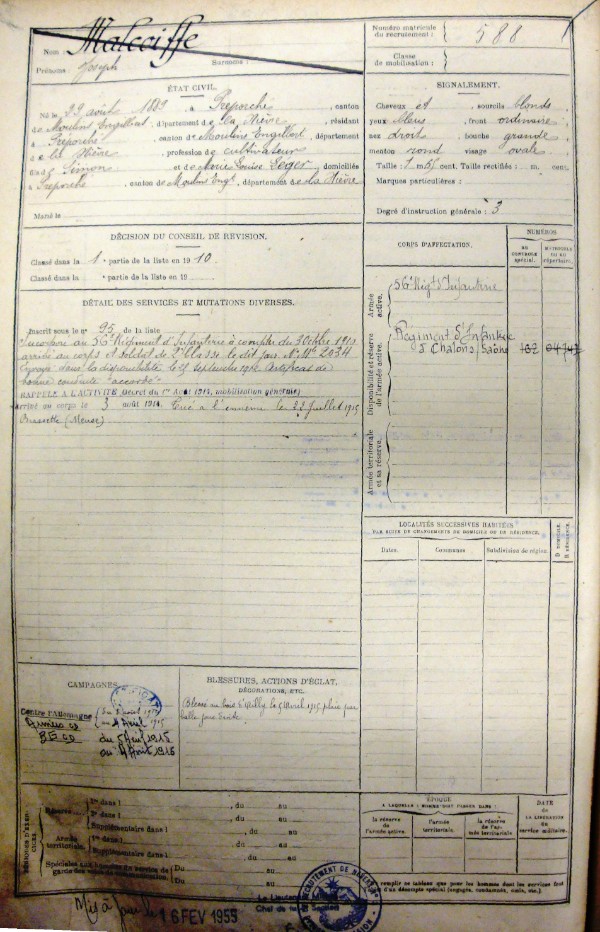 Nom : Malcoiffe
Prénoms : Joseph Surnoms :
Numéro matricule
du recrutement : 588
Classe
de mobilisation :
ÉTAT CIVIL.
Né le 29 août 1889, à Préporché, canton
de Moulins Engilbert, département de la Nièvre, résidant
à Préporché, canton de Moulins Engilbert, département
de la Nièvre, profession de cultivateur
fils de Simon et de Marie Louise Léger, domiciliés
à Préporché, canton de Moulins Engt, département de la Nièvre
Marié le
SIGNALEMENT.
Cheveux et sourcils blonds
yeux bleus, front ordinaire
nez droit, bouche grande
menton rond visage ovale
Taille : 1 m. cent. Taille rectifiée : m. cent.
Marques particulières :
Degré d'instruction générale : 3
DÉCISION DU CONSEIL DE RÉVISION.
Classé dans la 1 partie de la liste en 1910
Classé dans la partie de la liste en 19
DÉTAIL DES SERVICES ET MUTATIONS DIVERSES.
Inscrit sous le n° 95 de la liste
Incorporé au 56e Régiment d'Infanterie à compter du 3 Octre 1910
arrivé au corps et soldat de 2e classe le dit jour. N° Mle 2034
Envoyé dans la disponibilité le 25 septembre 1912. Certificat de
bonne conduite "accordé"
RAPPELÉ A L'ACTIVITÉ (décret du 1er Août 1914, mobilisation générale)
arrivé au corps le 3 août 1914. Tué à l'ennemi le 22 Juillet 1915
(Meuse)
CORPS D'AFFECTATION.
NUMÉROS
AU
CONTRÔLE
spécial.
MATRICULE
OU AU
répertoire.
Armée
active.
56e Régt d'Infanterie
Disponibilité et réserve
de l'armée active.
Régiment d'Infanterie
d Chalons s/Saône
Armée territoriale
et sa réserve.
LOCALITÉS SUCCESSIVES HABITÉES
PAR SUITE DE CHANGEMENTS DE DOMICILE OU DE RÉSIDENCE.
Dates. Communes Subdivision de région
D. DOMICILE.
R. RÉSIDENCE.
CAMPAGNES.
Contre l'Allemagne
Armées
du 5 Avril 1915
BLESSURES, ACTIONS D'ÉCLAT,
DÉCORATIONS, ETC.
Blessé au bois d'Ailly le 5 Avril 1915 plaie par
balle
SERVICES D'EXERCICES.
Réserve
1re dans l , du au
2e dans l , du au
Supplémentaire dans l , du au
Armée
territoriale.
1re dans l , du au
Supplémentaire dans l , du au
Spéciales aux hommes du service de
garde des voies de communication.
Du au
Du au
ÉPOQUE
A LAQUELLE L'HOMME DOIT PASSER DANS :
la réserve
de l'armée active.
l'armée
territoriale.
la réserve
de l'armée territoriale.
DATE
DE LA LIBÉRATION
du service militaire.
remplir ce tableau que pour les hommes dont les services font
l'objet d'un décompte spécial (engagés, condamnés, omis, etc.).
Mis à jour le 16 FEV 1955
RECRUTEMENT DE NEVERS